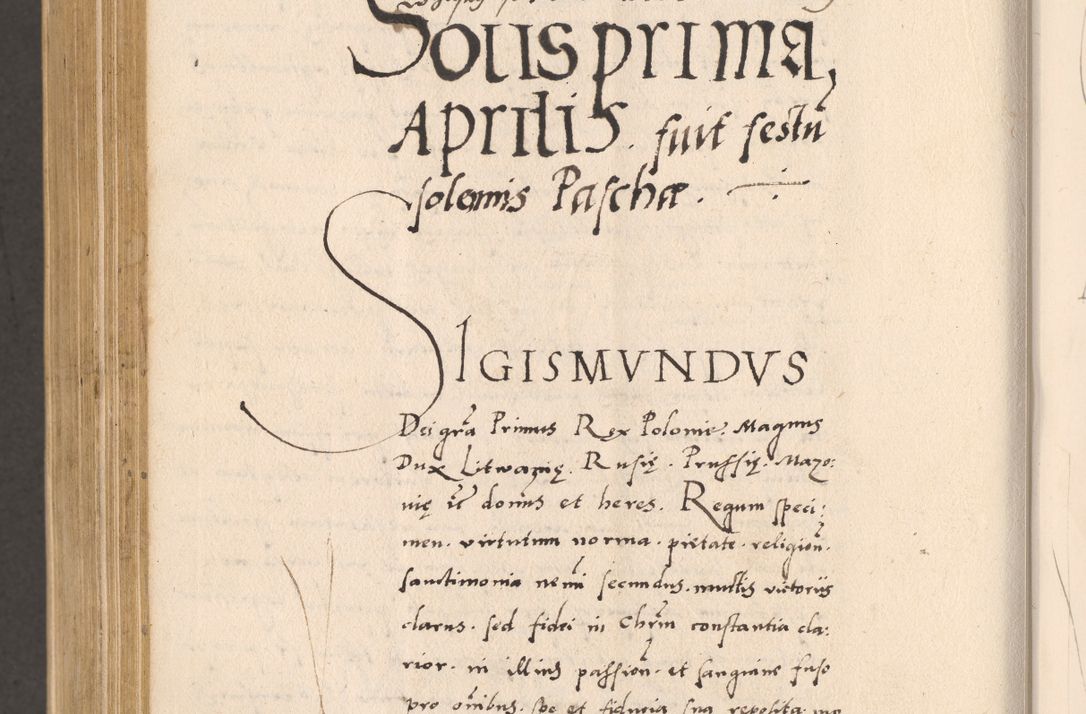 Solis prima,
Aprilis. fuit festū
solemnis Paschæ.
SIGISMVNDVS
Dei grā Primus Rex Polonię. Magnus
Dux Litwanię. Rusię. Prussię. Mazo:
uię etc dominus et heres. Regum speci:
men. virtutum norma. pietate. religion.
sanctimonia nemi secundus. multis victoriis
clarus. sed fidei in Chrm constantia cla:
rior. in illius passion. et sanguine fuso
pro omibus. spe et fiducia sua reposita.